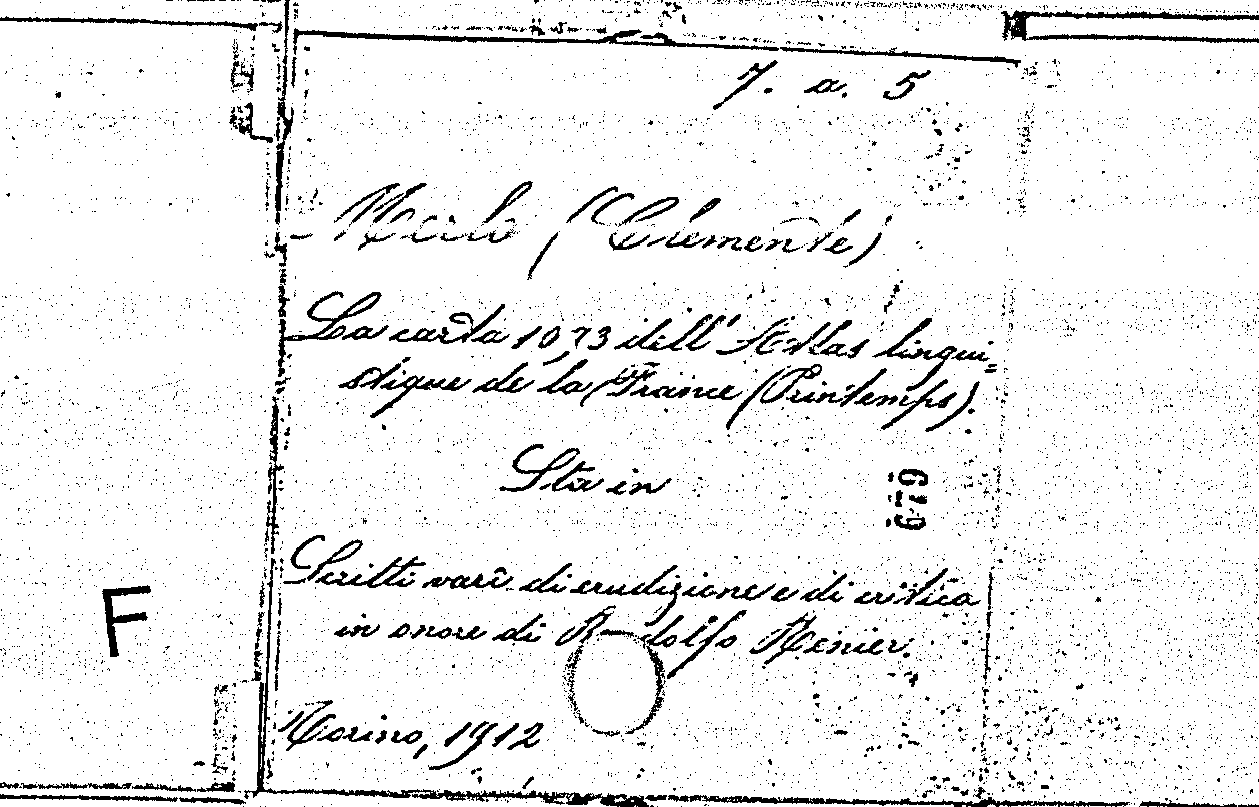 7. a. 5
Merlo (Clemente)
La carta 1073 dell' Atlas lingui=
stique de la France (Printemps).
Sta in
679
Scritti varî di erudizione e di critica
in onore di Rodolfo Renier.
F
Torino, 1912